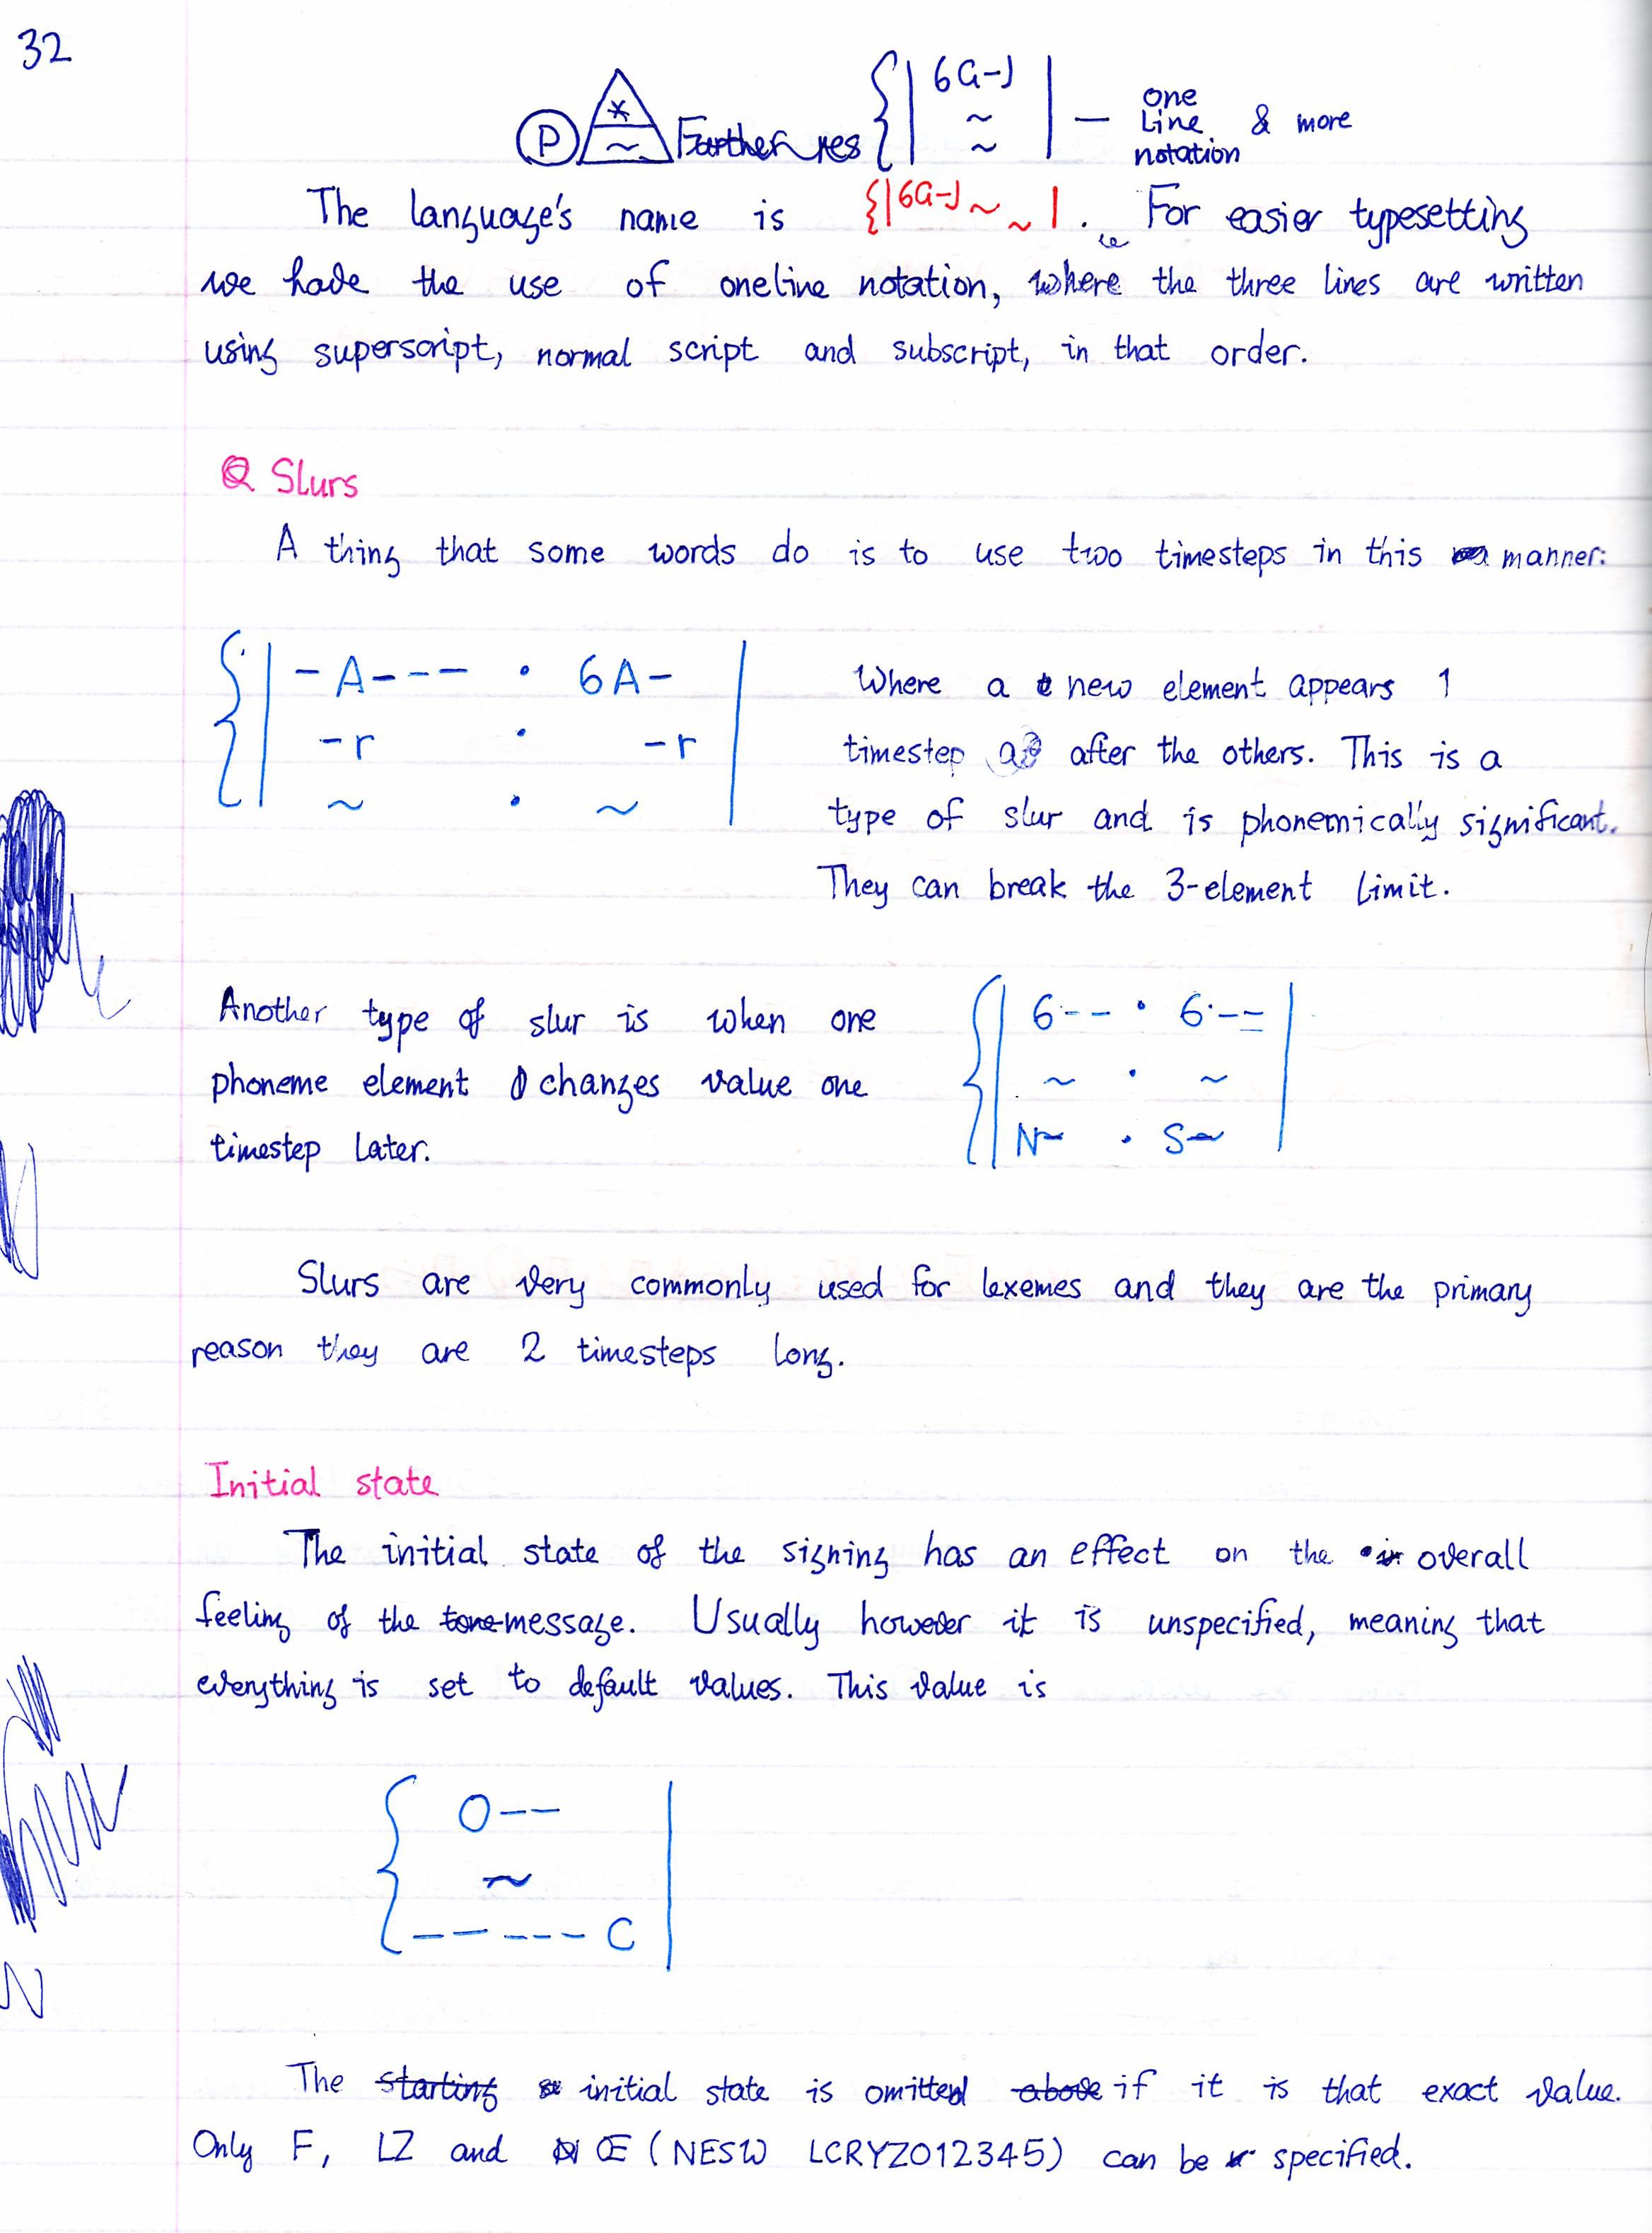 32
P * ~ Further res { | 6G-J ~ ~ | — one line notation & more
The language's name is {| 6G-J ~ ~ |. For easier typesetting
we have the use of oneline notation, where the three lines are written
using superscript, normal script and subscript, in that order.
Slurs
A thing that some words do is to use two timesteps in this manner:
{ | -A--- · 6A- |
-r · -r
~ · ~
Where a new element appears 1
timestep after the others. This is a
type of slur and is phonemically significant.
They can break the 3-element limit.
Another type of slur is when one
phoneme element changes value one
timestep later.
{ | 6-- · 6·-- |
~ · ~
N~ · S~
Slurs are very commonly used for lexemes and they are the primary
reason they are 2 timesteps long.
Initial state
The initial state of the signing has an effect on the overall
feeling of the tone message. Usually however it is unspecified, meaning that
everything is set to default values. This value is
{ O-- |
~
-- --- C
The starting initial state is omitted above if it is that exact value.
Only F, LZ and Œ (NESW LCRYZ012345) can be specified.